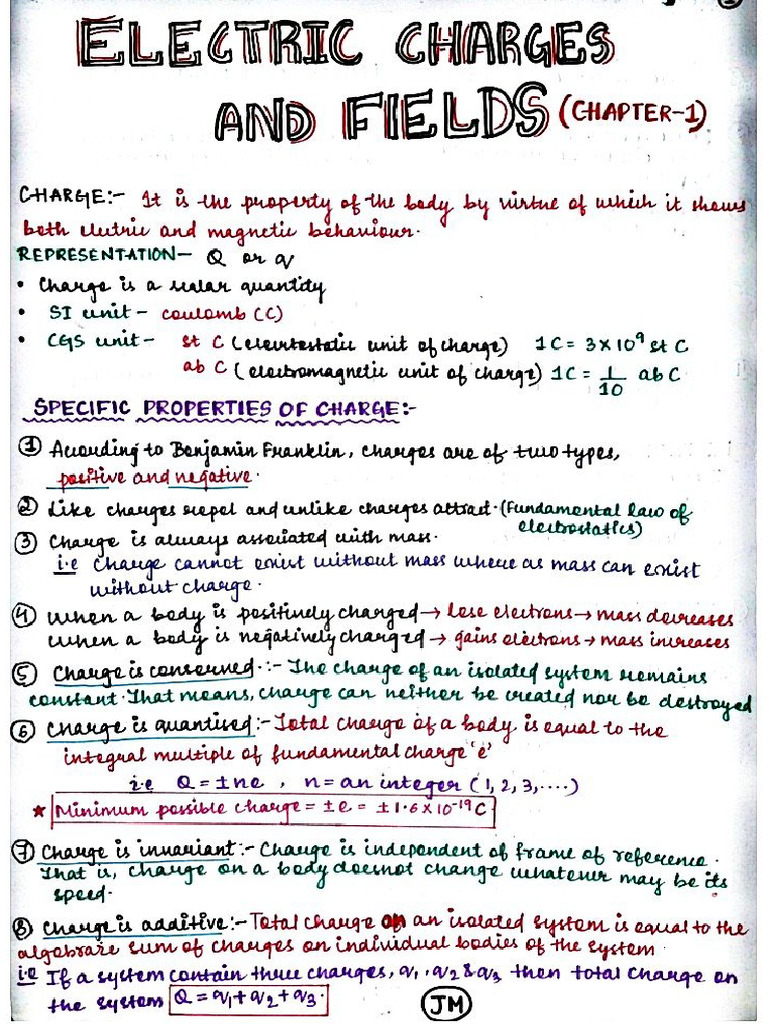 ELECTRIC CHARGES
AND FIELDS (CHAPTER-1)
CHARGE:- It is the property of the body by virtue of which it shows
both electric and magnetic behaviour.
REPRESENTATION- Q or q
• Charge is a scalar quantity
• SI unit - coulomb (C)
• CGS unit - st C (electrostatic unit of charge) 1C = 3×10⁹ st C
ab C (electromagnetic unit of charge) 1C = 1/10 ab C
SPECIFIC PROPERTIES OF CHARGE:-
① According to Benjamin Franklin, charges are of two types,
positive and negative.
② Like charges repel and unlike charges attract. (Fundamental law of
electrostatics)
③ Charge is always associated with mass.
i.e Charge cannot exist without mass where as mass can exist
without charge.
④ When a body is positively charged → lose electrons → mass decreases
When a body is negatively charged → gains electrons → mass increases
⑤ Charge is conserved.:- The charge of an isolated system remains
constant. That means, charge can neither be created nor be destroyed
⑥ Charge is quantised:- Total charge of a body is equal to the
integral multiple of fundamental charge 'e'
i.e Q = ±ne , n = an integer (1, 2, 3, ....)
★ Minimum possible charge = ±e = ±1.6×10⁻¹⁹C
⑦ Charge is invariant:- Charge is independent of frame of reference.
That is, charge on a body doesnot change whatever may be its
speed.
⑧ Charge is additive:- Total charge on an isolated system is equal to the
algebraic sum of charges on individual bodies of the system.
i.e If a system contain three charges, q₁, q₂ & q₃ then total charge on
the system Q = q₁ + q₂ + q₃.
JM